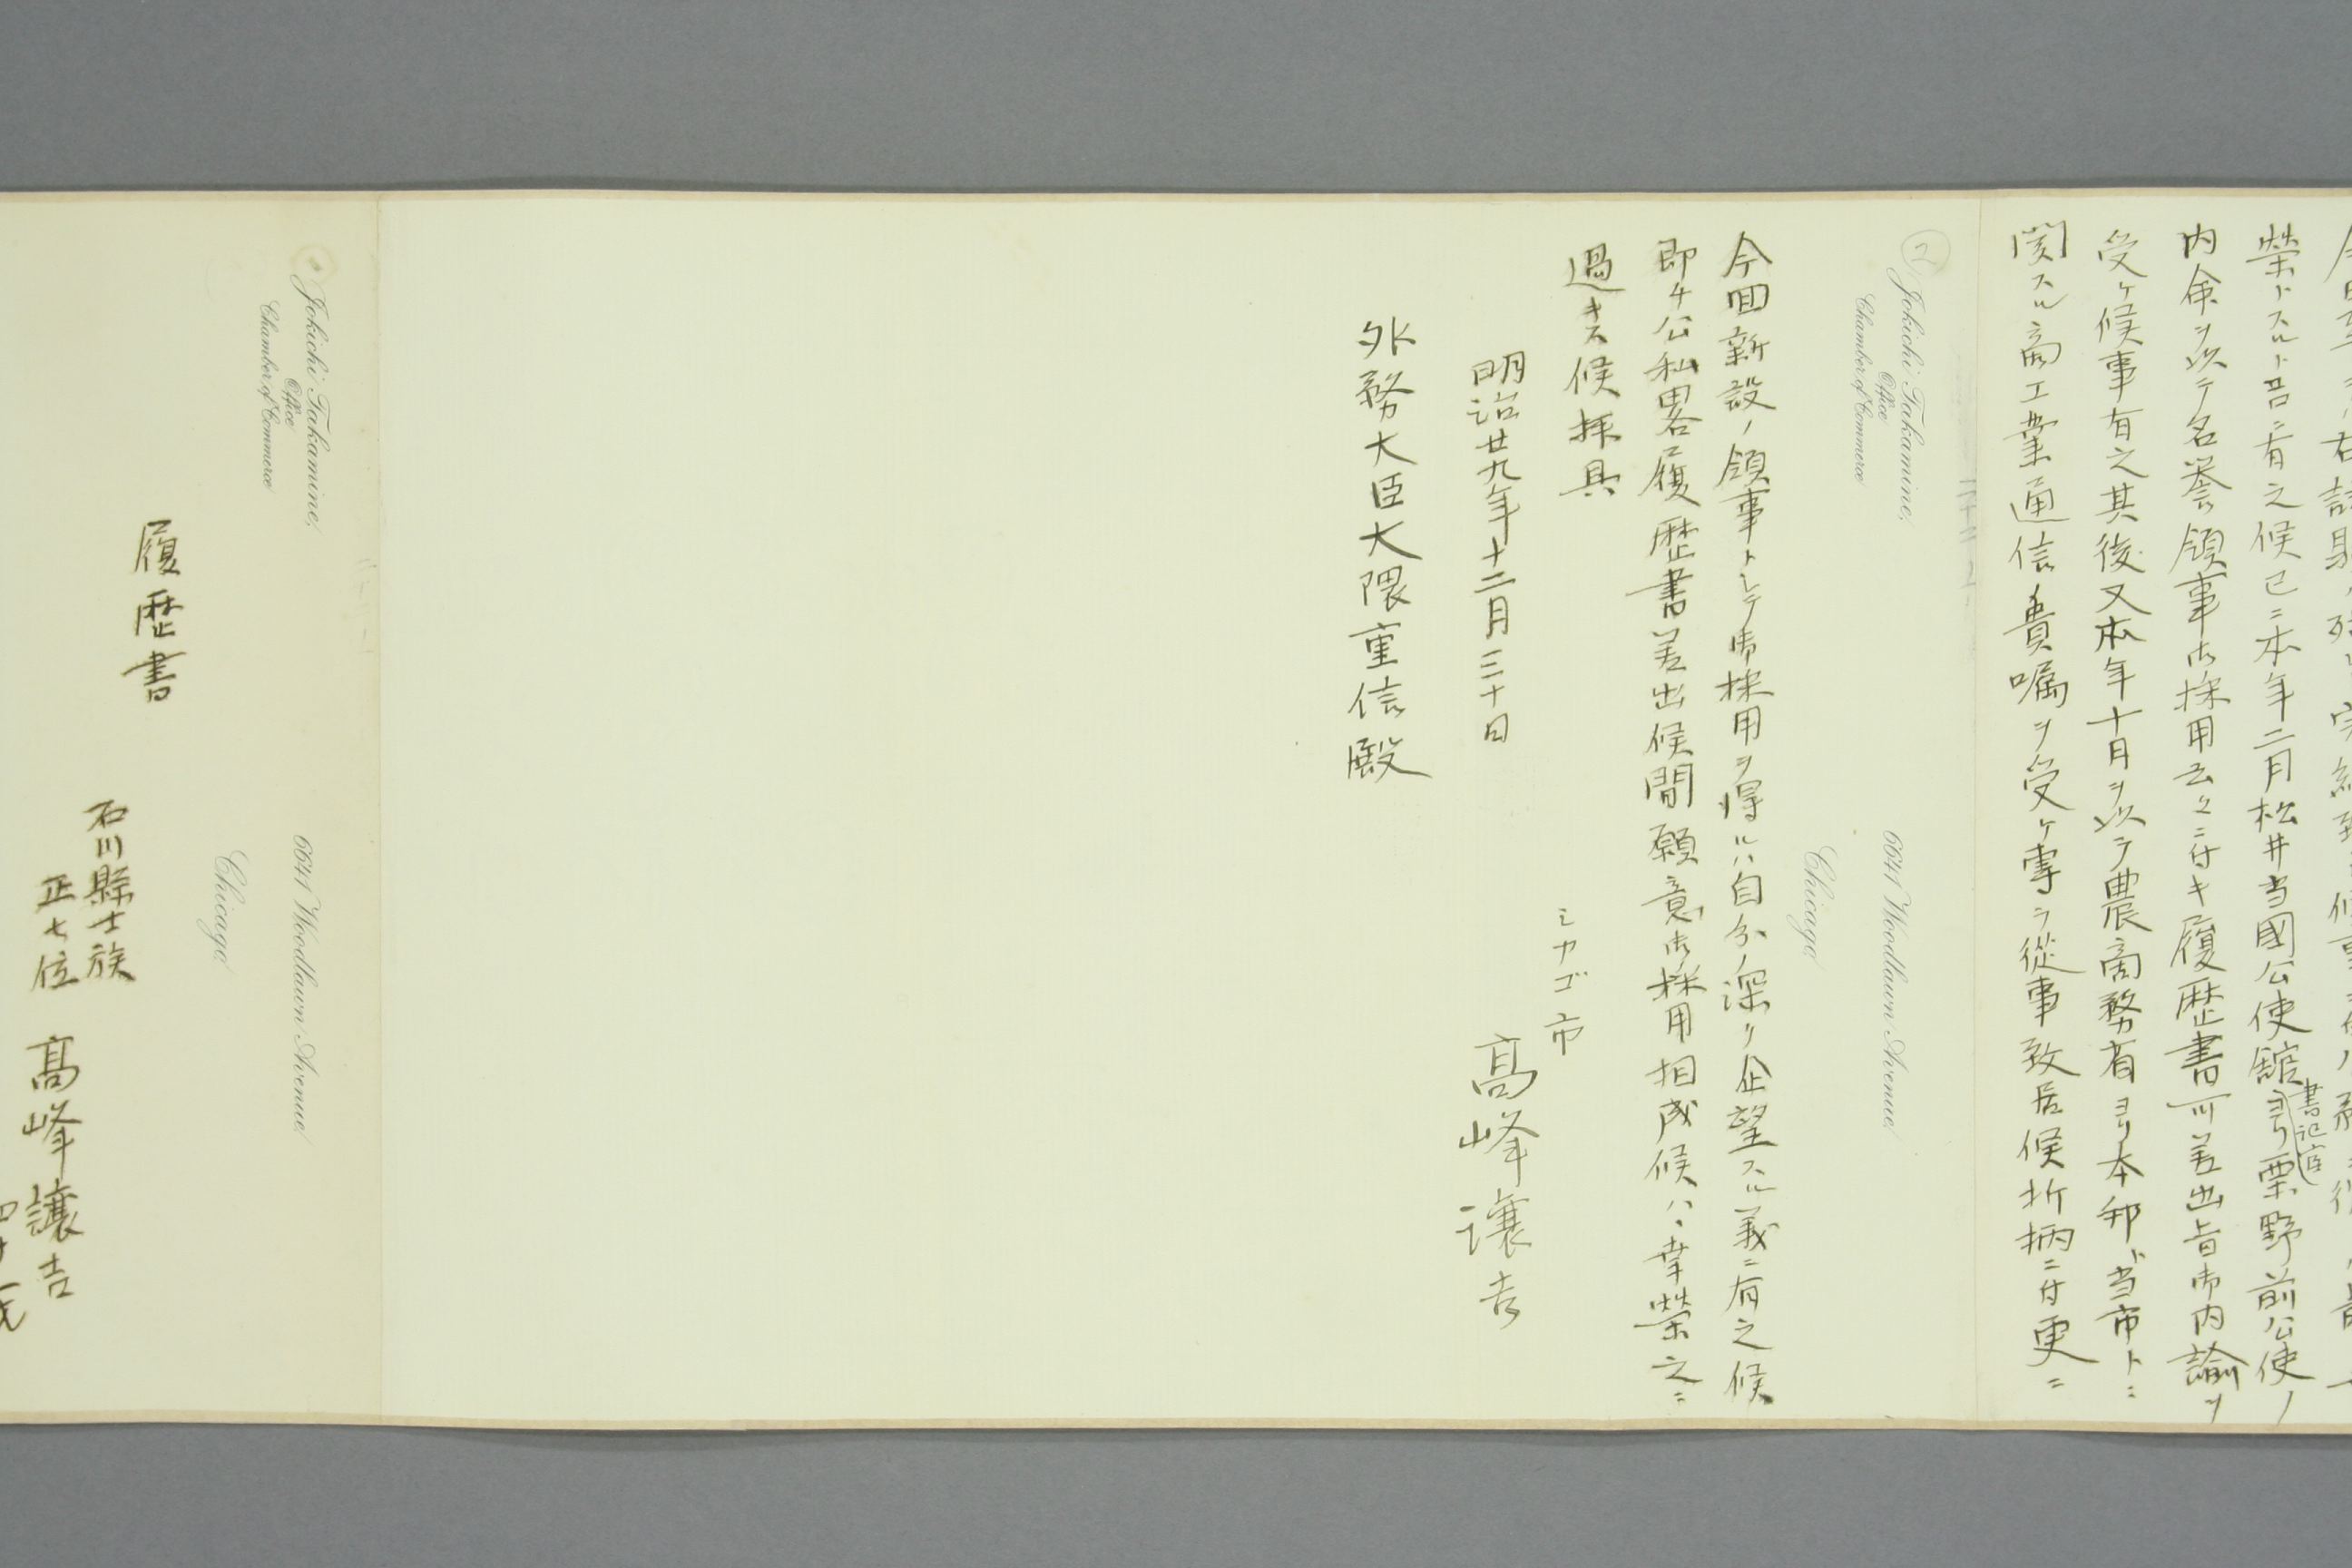 榮トスル所ニ有之候已ニ本年二月松井当國公使舘書記官ヨリ栗野前公使ノ
内命ヲ以テ名誉領事御採用云々ニ付キ履歴書可差出旨御内諭ヲ
受ケ候事有之其後又本年十月ヲ以テ農商務省ヨリ本邦ト当市トニ
関スル商工業通信ノ貴嘱ヲ受ケ専ラ從事致居候折柄ニ付更ニ
Jokichi Takamine,
Office
Chamber of Commerce
6641 Woodlawn Avenue
Chicago
今回新設ノ領事トシテ御採用ヲ得ルハ自分ノ深ク企望スル義ニ有之候
即チ公私畧履歴書差出候間願意御採用相成候ハヽ幸榮之ニ
過キス候拝具
シカゴ市
明治廿九年十二月三十日
高峰譲吉
外務大臣大隈重信殿
Jokichi Takamine,
Office
Chamber of Commerce
6641 Woodlawn Avenue
Chicago
履歴書
石川縣士族
正七位 高峰譲吉